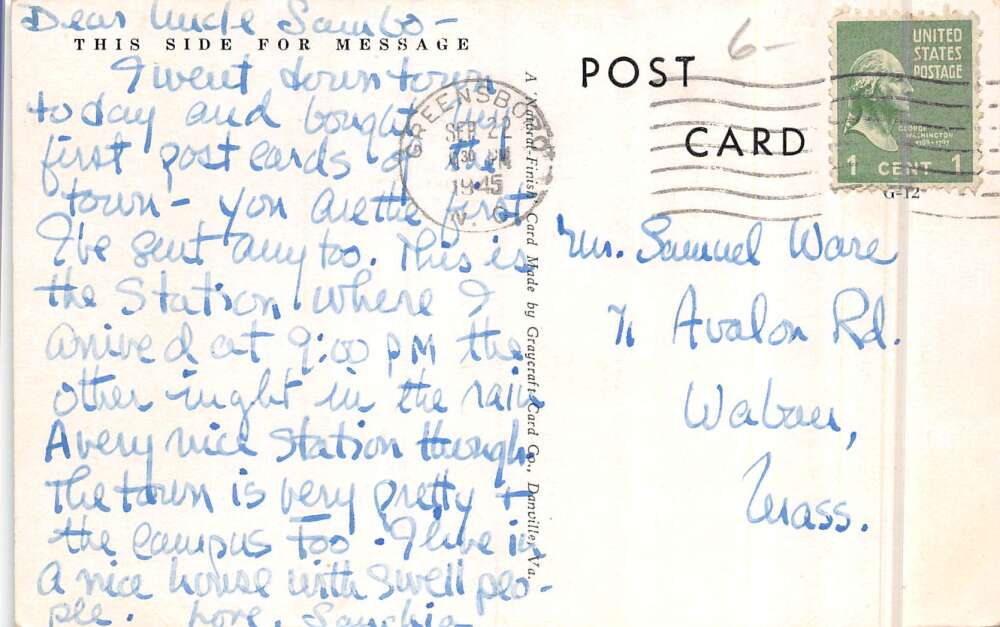 Dear Uncle Sambo-
THIS SIDE FOR MESSAGE
I went down town
today and bought
first postcards of the
town - you are the first
I've sent any too. This is
the station where I
arrived at 9:00 PM the
other night in the rain.
A very nice station though.
The town is very pretty +
the campus too. I live in
a nice house with swell peo-
ple. Love,
A "Natural-Finish" Card Made by Graycraft Card Co., Danville, Va.
GREENSBORO
SEP 22
PM
1945
N. C.
POST
CARD
6-
UNITED
STATES
POSTAGE
GEORGE
WASHINGTON
1 CENT 1
G-12
Mr. Samuel Ware
71 Avalon Rd.
Waban,
Mass.